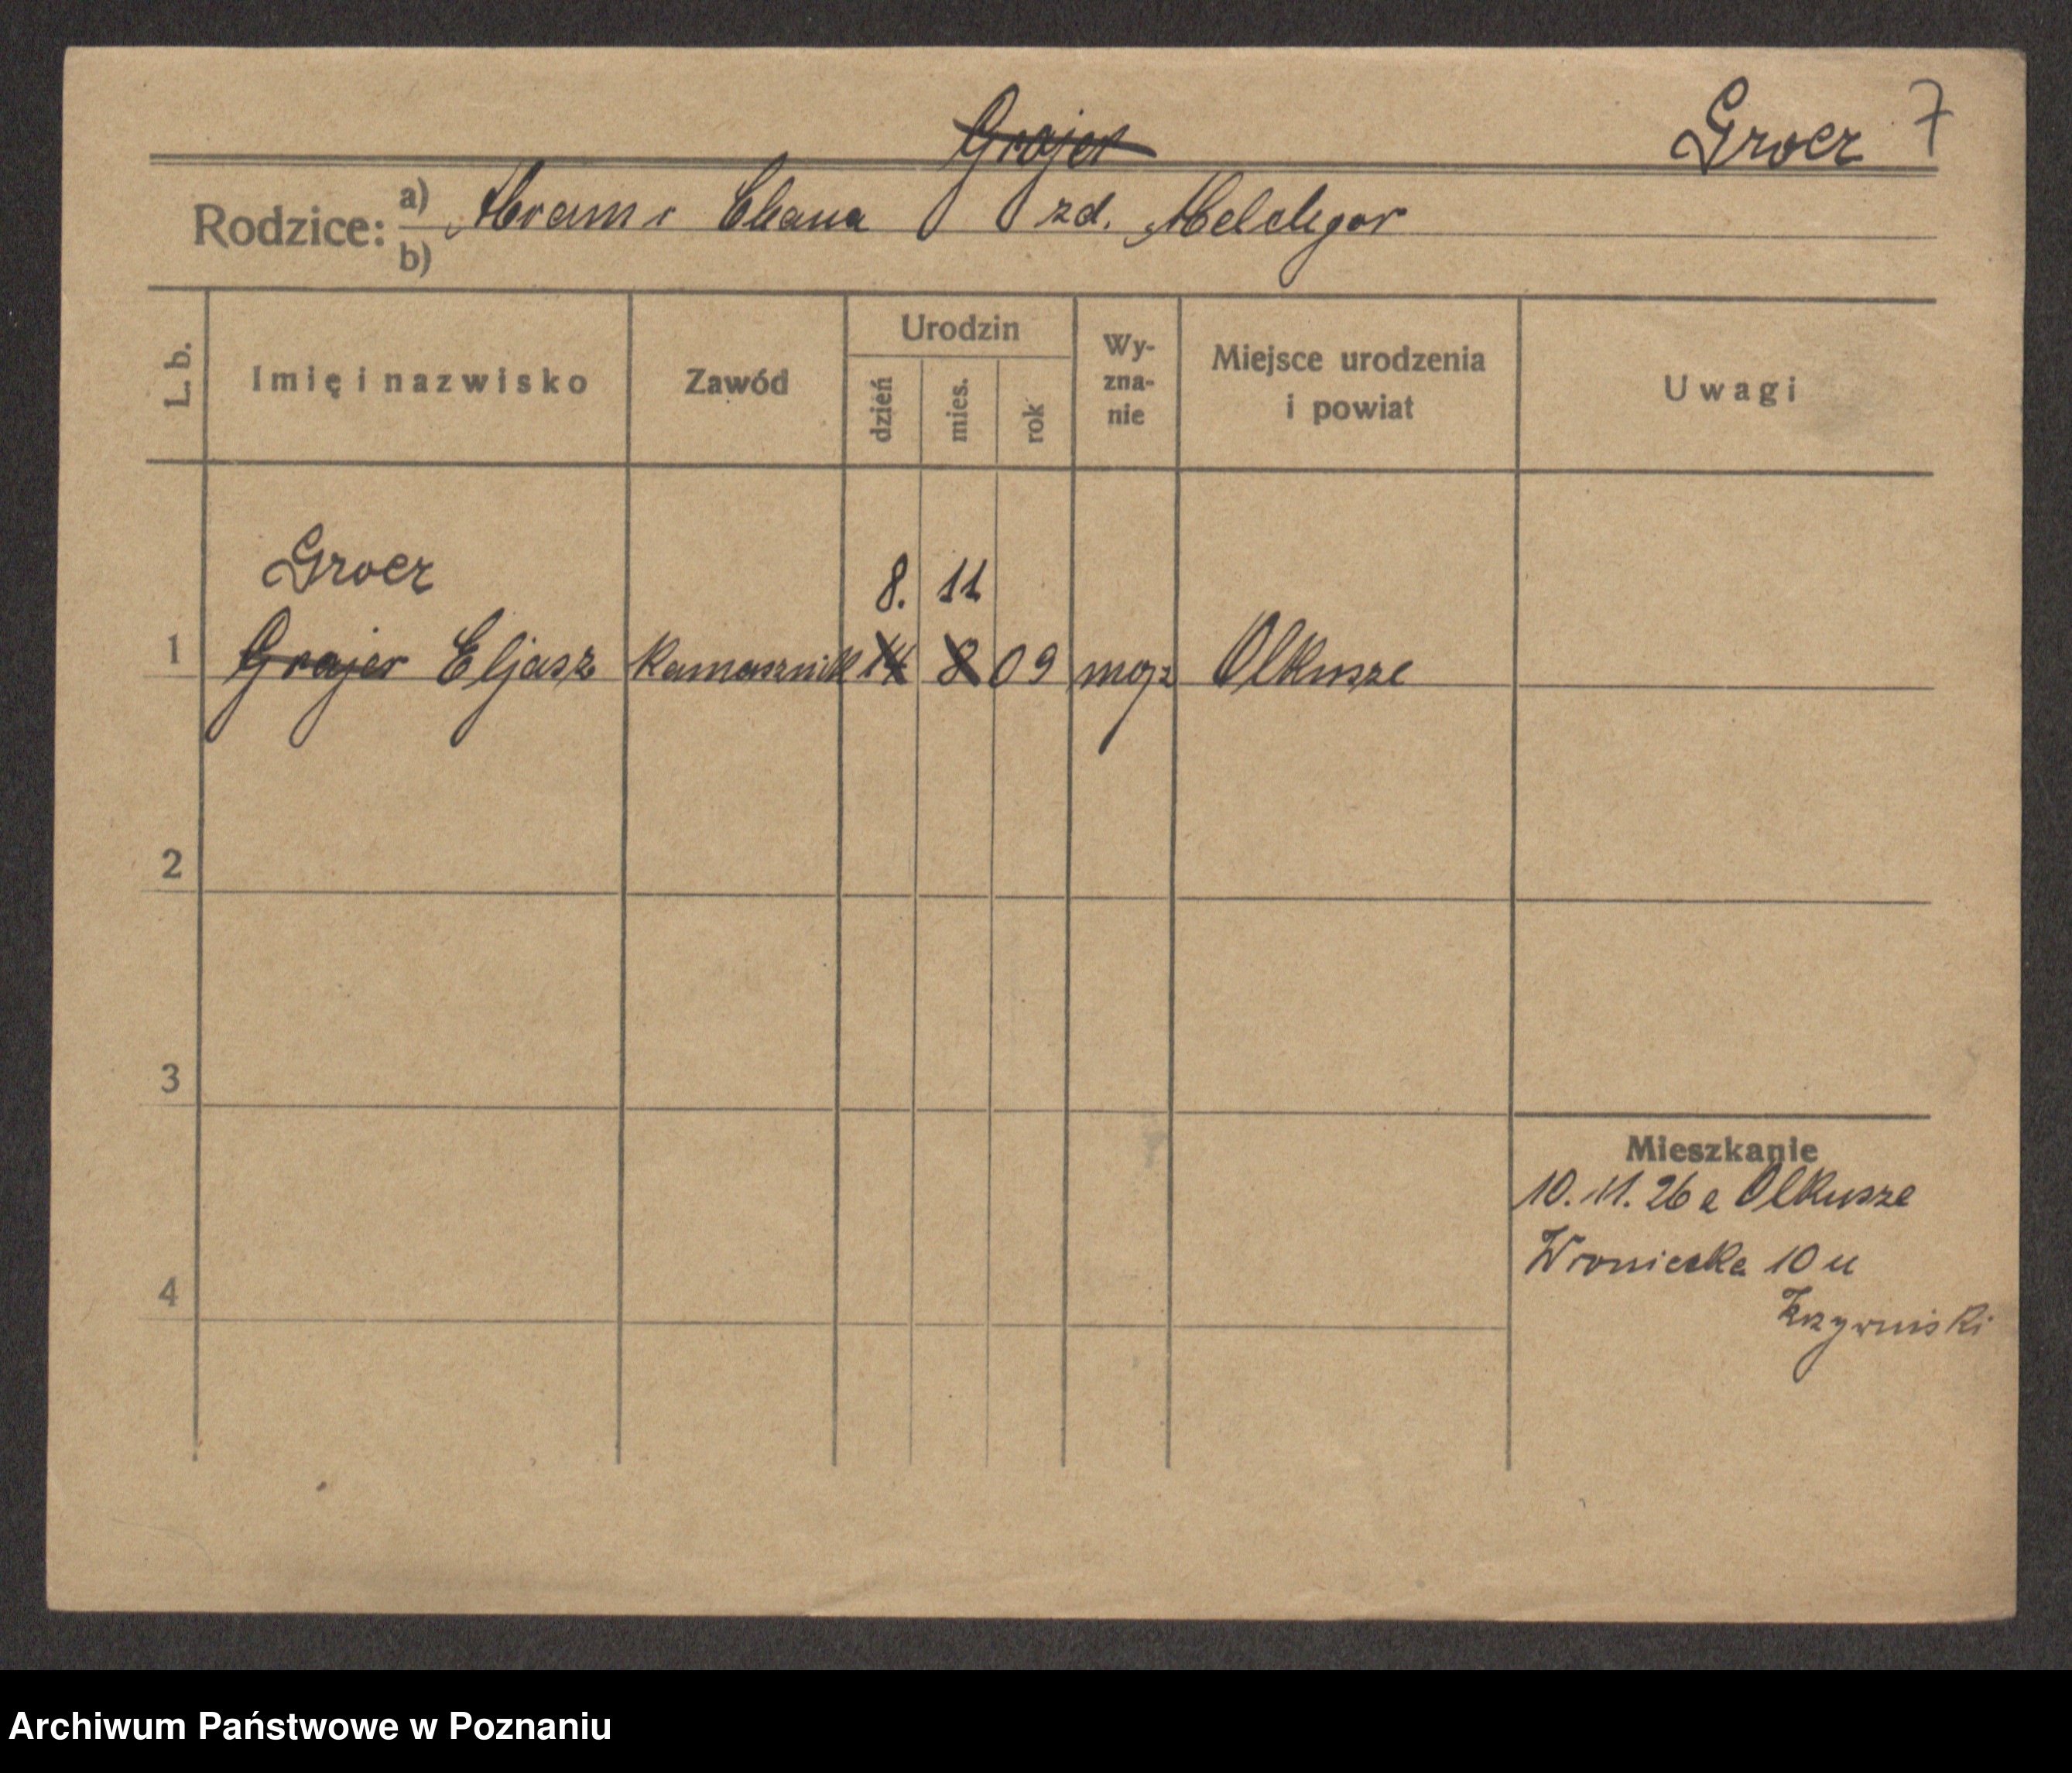 Grajer Groer 7
Rodzice: a) Abram i Chana zd. Melchgor
b)
L. b. Imię i nazwisko Zawód Urodzin dzień mies. rok Wy-zna-nie Miejsce urodzenia i powiat Uwagi
Groer 8. 11
1 Grajer Eljasz Kamasznik 14 8 09 mojż Olkusze
2
3
Mieszkanie
10.11.26 z Olkusze
Wroniecka 10 u
4
Archiwum Państwowe w Poznaniu